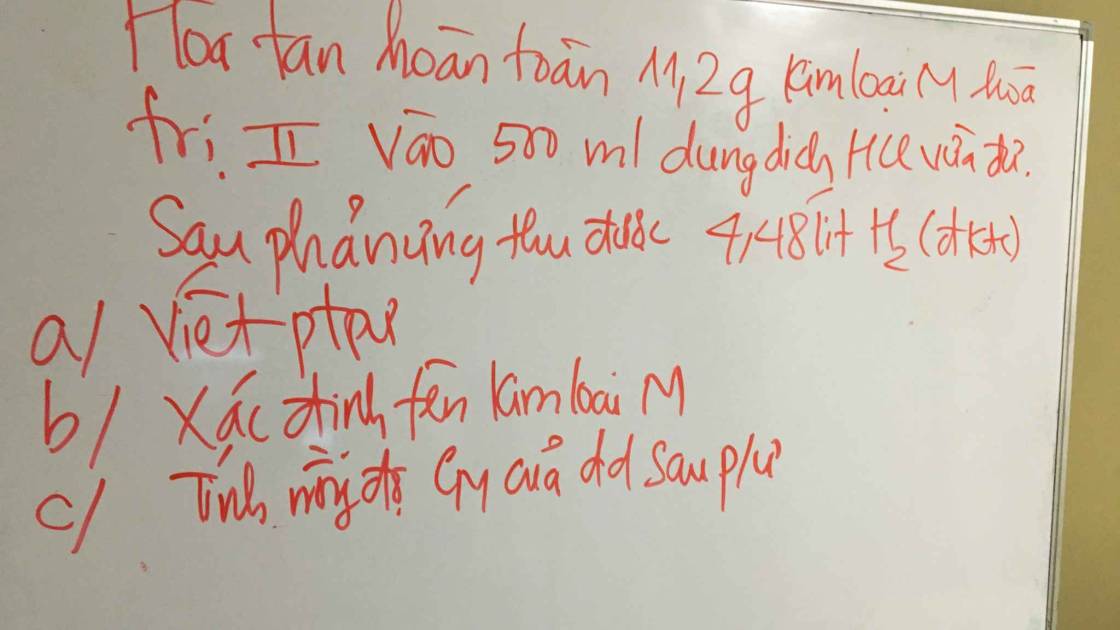 Hòa tan hoàn toàn 11,2g kim loại M hoá
trị II vào 500 ml dung dịch HCl vừa đủ.
Sau phản ứng thu được 4,48 lít H₂ (đktc)
a/ Viết ptpư
b/ Xác định tên kim loại M
c/ Tính nồng độ CM của dd sau p/ư